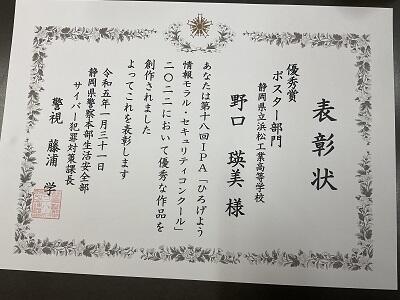 表彰状
優秀賞
ポスター部門
静岡県立浜松工業高等学校
野口 瑛美 様
あなたは第十八回IPA「ひろげよう
情報モラル・セキュリティコンクール」
二〇二二において優秀な作品を
創作されました
よってこれを表彰します
令和五年一月三十一日
静岡県警察本部生活安全部
サイバー犯罪対策課長
警視 藤浦 学